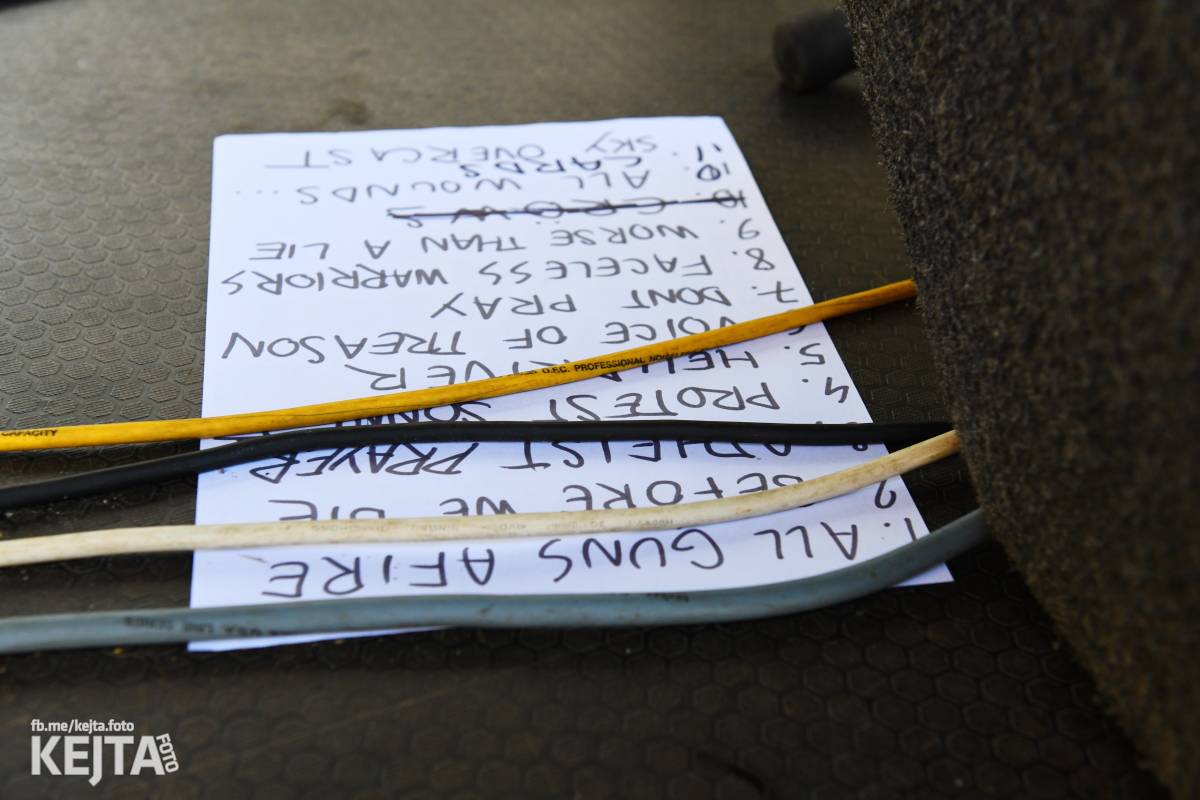 1. ALL GUNS AFIRE
2 BEFORE WE DIE
3. ATHEIST PRAYER
4. PROTEST
5.
6. VOICE OF TREASON
7. DONT PRAY
8. FACELESS WARRIORS
9. WORSE THAN A LIE
10. CROWS
10. ALL WOUNDS...
CARDS
11. SKY OVERCAST
O.F.C. PROFESSIONAL
CAPACITY
fb.me/kejta.foto
KEJTA FOTO